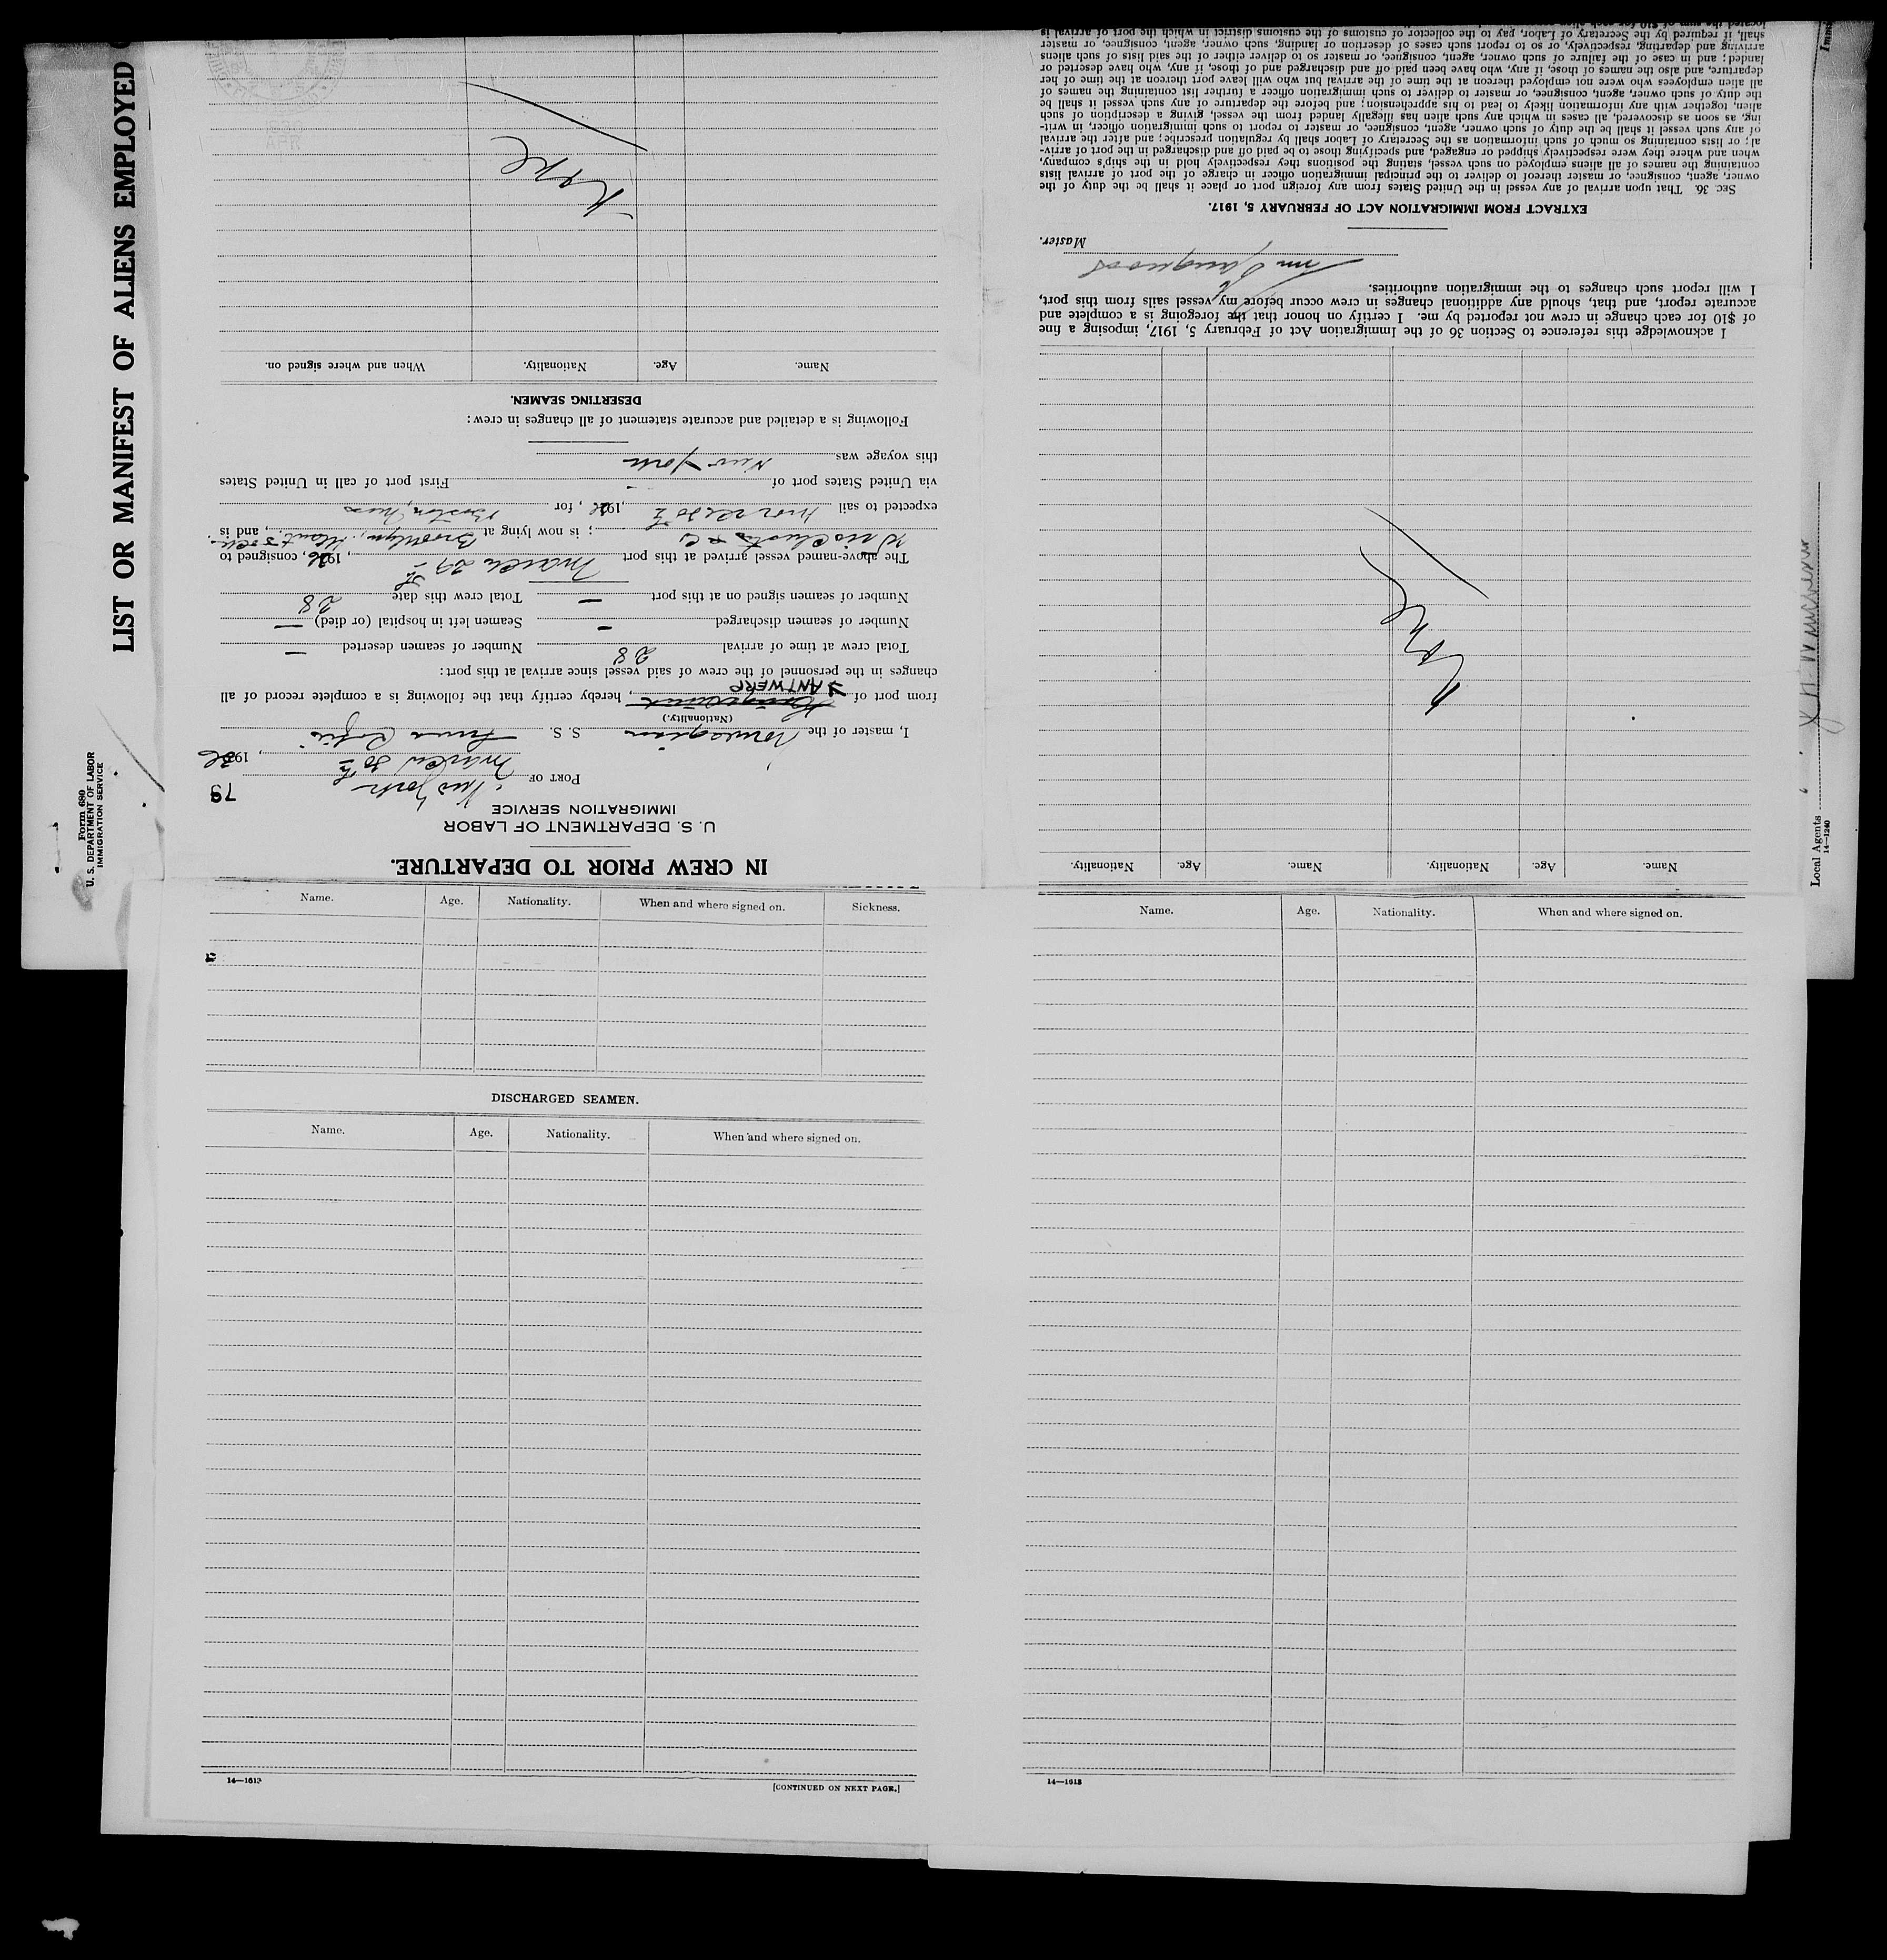 LIST OR MANIFEST OF ALIENS EMPLOYED
Form 680
U. S. DEPARTMENT OF LABOR
IMMIGRATION SERVICE
IN CREW PRIOR TO DEPARTURE.
U. S. DEPARTMENT OF LABOR
IMMIGRATION SERVICE
79
PORT OF New York
March 30th, 1926
I, master of the Norwegian S. S.
(Nationality.)
from port of ANTWERP, hereby certify that the following is a complete record of all
changes in the personnel of the crew of said vessel since arrival at this port:
Total crew at time of arrival 28 Number of seamen deserted —
Number of seamen discharged — Seamen left in hospital (or died) —
Number of seamen signed on at this port — Total crew this date 28
The above-named vessel arrived at this port March 29th, 1926, consigned to
; is now lying at Brooklyn, and is
expected to sail March 30th, 1926, for Boston, Mass
via United States port of — First port of call in United States
this voyage was New York
Following is a detailed and accurate statement of all changes in crew:
DESERTING SEAMEN.
Name. Age. Nationality. When and where signed on.
None
APR
Name. Age. Nationality. Name. Age. Nationality.
None
I acknowledge this reference to Section 36 of the Immigration Act of February 5, 1917, imposing a fine
of $10 for each change in crew not reported by me. I certify on honor that the foregoing is a complete and
accurate report, and that, should any additional changes in crew occur before my vessel sails from this port,
I will report such changes to the immigration authorities.
Master.
EXTRACT FROM IMMIGRATION ACT OF FEBRUARY 5, 1917.
SEC. 36. That upon arrival of any vessel in the United States from any foreign port or place it shall be the duty of the
owner, agent, consignee, or master thereof to deliver to the principal immigration officer in charge of the port of arrival lists
containing the names of all aliens employed on such vessel, stating the positions they respectively hold in the ship's company,
when and where they were respectively shipped or engaged, and specifying those to be paid off and discharged in the port of arriv-
al; or lists containing so much of such information as the Secretary of Labor shall by regulation prescribe; and after the arrival
of any such vessel it shall be the duty of such owner, agent, consignee, or master to report to such immigration officer, in writ-
ing, as soon as discovered, all cases in which any such alien has illegally landed from the vessel, giving a description of such
alien, together with any information likely to lead to his apprehension; and before the departure of any such vessel it shall be
the duty of such owner, agent, consignee, or master to deliver to such immigration officer a further list containing the names of
all alien employees who were not employed thereon at the time of the arrival but who will leave port thereon at the time of her
departure, and also the names of those, if any, who have been paid off and discharged and of those, if any, who have deserted or
landed; and in case of the failure of such owner, agent, consignee, or master so to deliver either of the said lists of such aliens
arriving and departing, respectively, or so to report such cases of desertion or landing, such owner, agent, consignee, or master
shall, if required by the Secretary of Labor, pay to the collector of customs of the customs district in which the port of arrival is
Local Agents
14—1240
Name. Age. Nationality. When and where signed on. Sickness.
DISCHARGED SEAMEN.
Name. Age. Nationality. When and where signed on.
14—1613
[CONTINUED ON NEXT PAGE.]
Name. Age. Nationality. When and where signed on.
14—1613